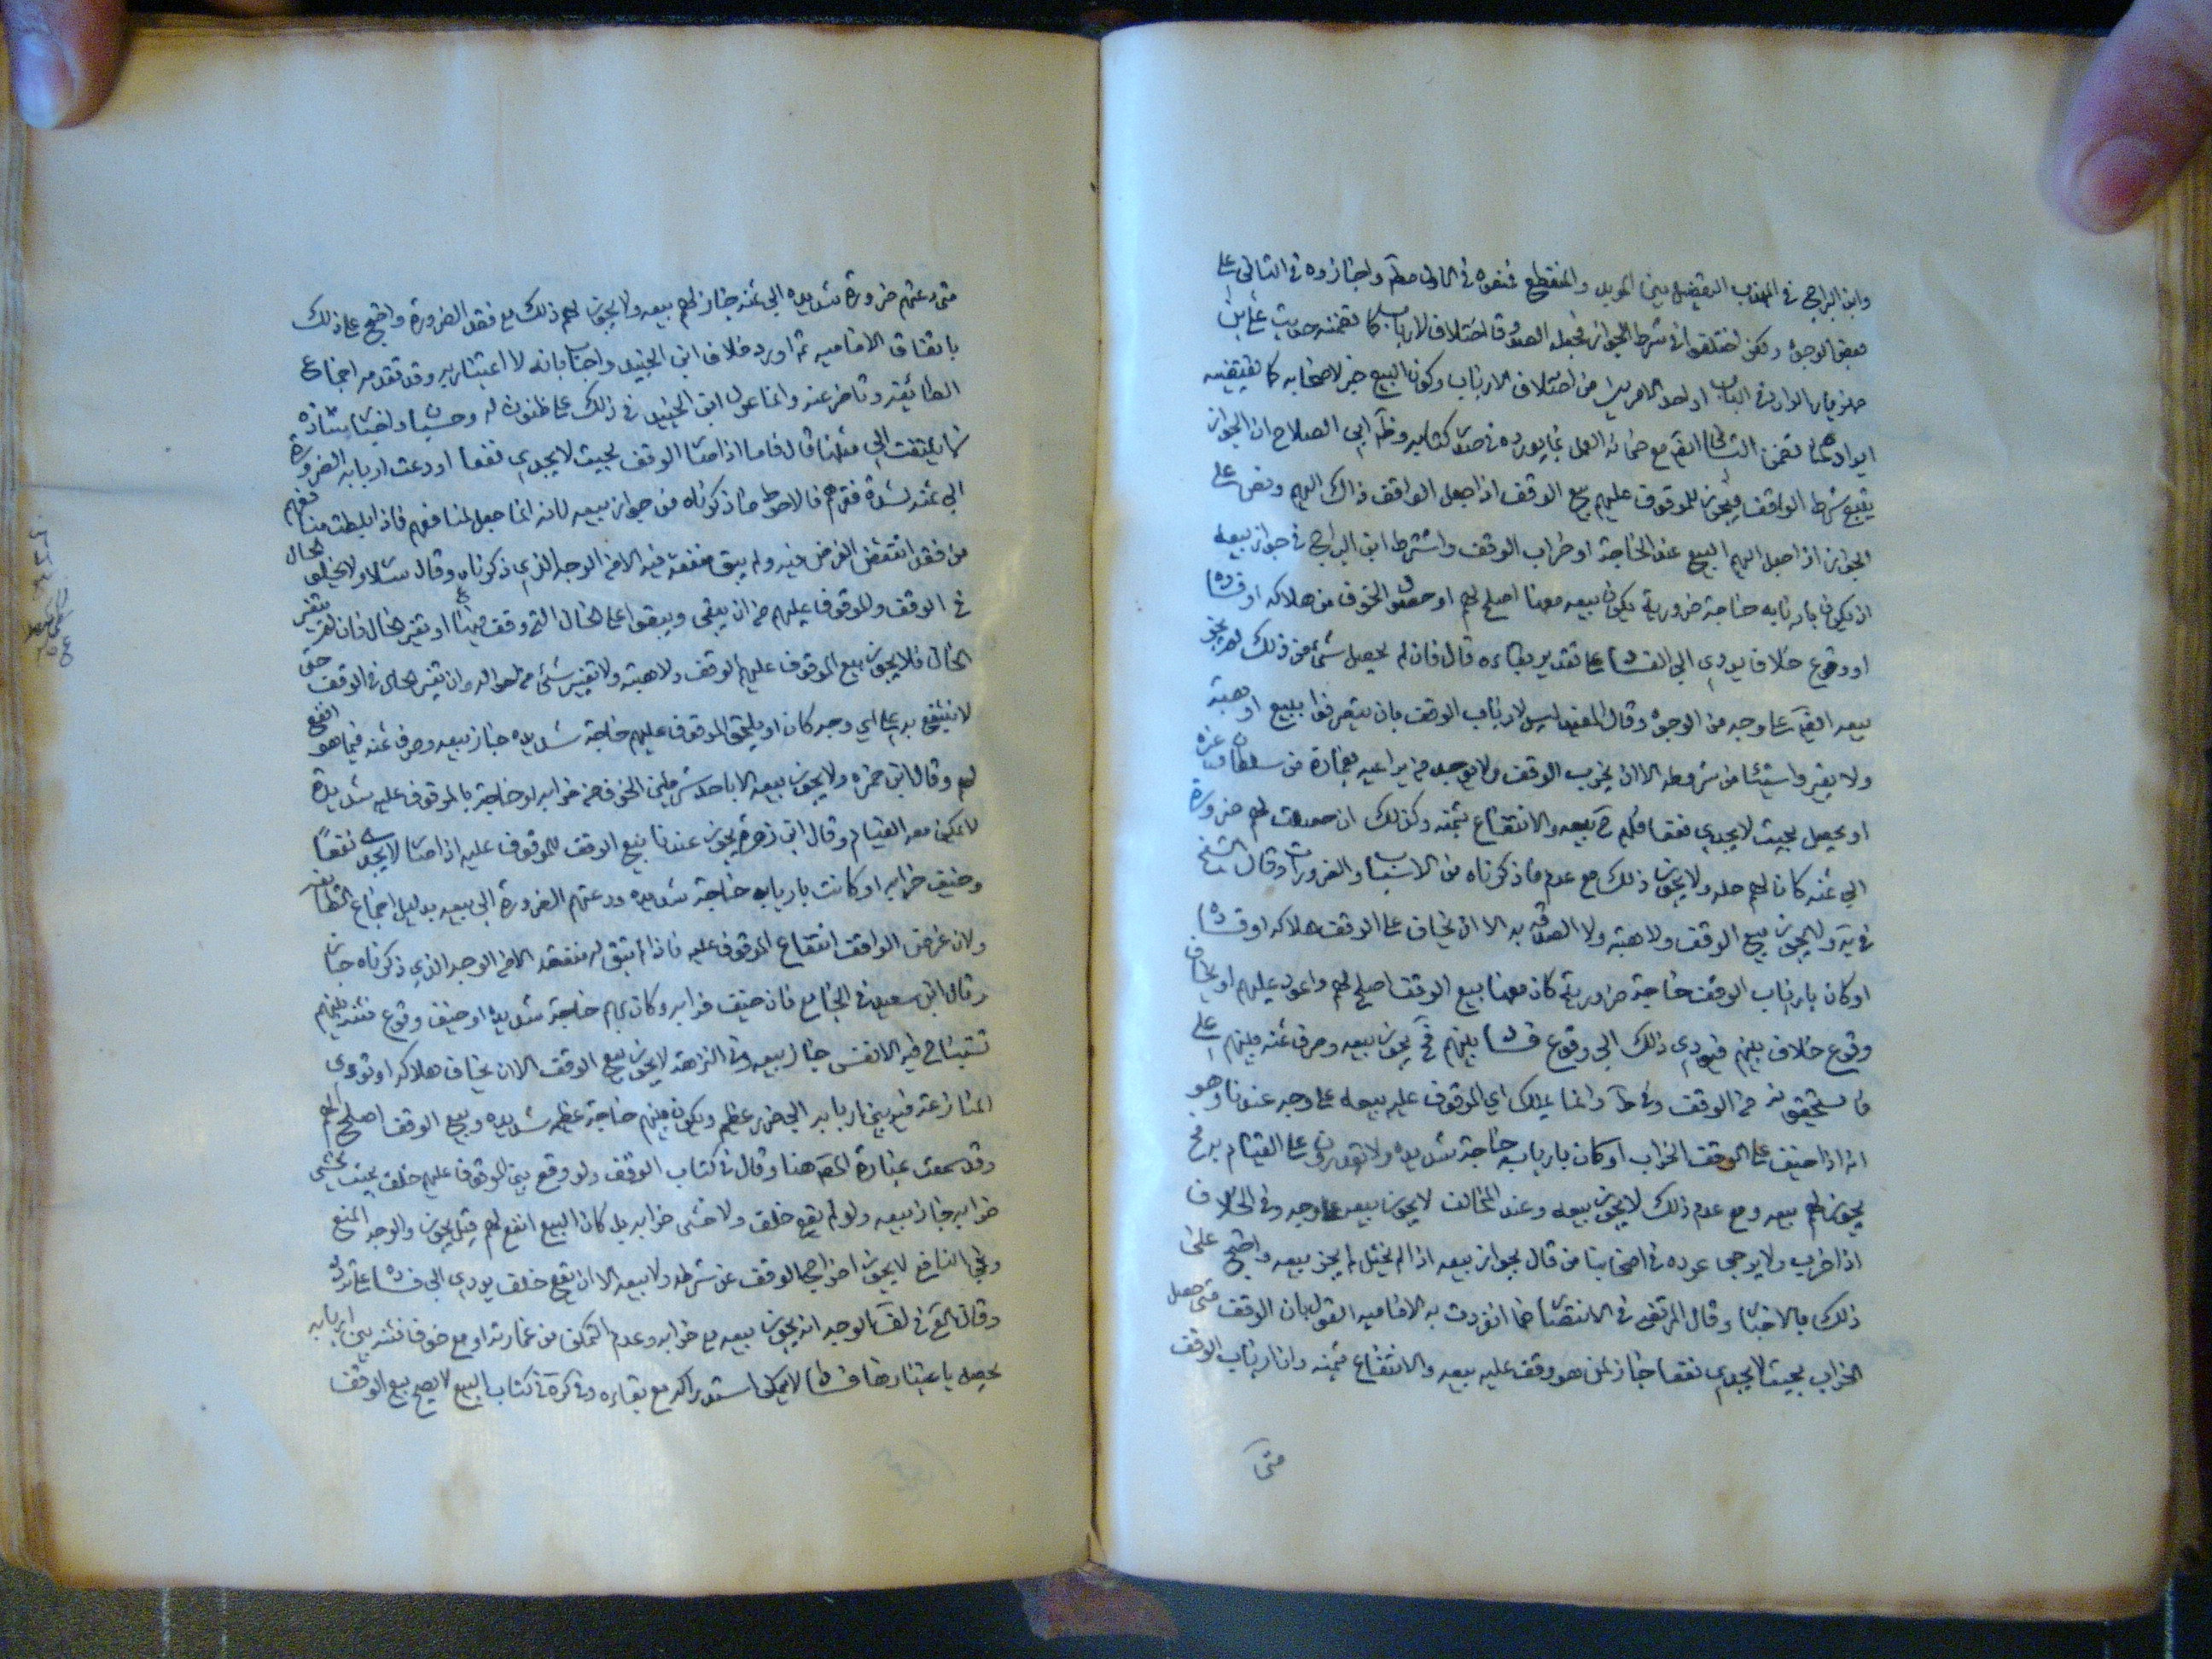 وابن البراج في المهذب التفصيل بين المؤبد والمنقطع فمنعوه في الاول مطم واجازوه في الثاني على
بعض الوجوه ولكن اختلفوا في شرط الجواز فجعله الصدوق اختلاف الارباب كما تضمنته حديث علي بن
مهزيار الوارد في الباب او احد الامرين من اختلاف الارباب وكون البيع خير لاصحابه كما يقتضيه
ايراده لما تضمن الثاني القيم مع ضمانه العمل بما يورده في صدر كتابه وظ ابي الصلاح ان الجواز
يتبع شرط الواقف فيجوز للموقوف عليهم بيع الوقف اذا جعل الواقف ذاك اليهم ونص على
الجواز اذا جعل اليهم البيع عند الحاجة او خراب الوقف واشترط ابن البراج في جواز بيعه
ان يكون بار بابه حاجة ضرورية يكون بيعه معها اصلح لهم او حصل الخوف من هلاكه او فساده
او وقوع خلاف يودي الى الفساد على تقدير بقاءه قال فان لم يحصل شئ من ذلك لم يجز
بيعه ايضا على وجه من الوجوه وقال المفيد ليس لارباب الوقف بان يتصرفوا ببيع او هبة
ولا يغيروا شيئا من شروطه الا ان يخرب الوقف ولا يوجد من يراعيه بعمارة من سلطان وغيره
او يحصل بحيث لا يجدي نفعا فلهم ح بيعه والانتفاع بثمنه وكذلك ان حصلت لهم ضرورة
الى ثمنه كان لهم حله ولا يجوز ذلك مع عدم ما ذكرناه من الاسباب والضرورات وقال الشيخ
في يه ولا يجوز بيع الوقف ولا هبته ولا الصدقة به الا ان يخاف على الوقف هلاكه او فساده
او كان بارباب الوقف حاجة ضرورية كان معها بيع الوقف اصلح لهم واعود عليهم او يخاف
وقوع خلاف بينهم فيودي ذلك الى وقوع فساد بينهم فح يجوز بيعه وصرف ثمنه فيهم على
ما يستحقونه من الوقف وفي ط وانما يملك اي الموقوف عليه بيعه على وجه عندنا وهو
انه اذا خيف على الوقف الخراب او كان باربابه حاجة شديده ولا يقدرون على القيام به فح
يجوز لهم بيعه ومع عدم ذلك لا يجوز بيعه وعند المخالف لا يجوز بيعه على وجه وفي الخلاف
اذا خرب ولا يرجى عوده في اصحابنا من قال بجواز بيعه اذا لم يختل لم يجز بيعه واحتج على
ذلك بالاخبار وقال المرتضى في الانتصار مما انفردت به الامامية القول بان الوقف متى حصل
الخراب بحيث لا يجدي نفعا جاز لمن هو وقف عليه بيعه والانتفاع بثمنه وان ارباب الوقف
متى
متى دعتهم ضرورة شديده الى ثمنه جاز لهم بيعه ولا يجوز لهم ذلك مع فقد الضرورة واحتج على ذلك
باتفاق الامامية ثم اورد خلاف ابن الجنيد واجاب بانه لا اعتبار به وقد تقدمه اجماع
الطائفة وتاخر عنه وانما عول ابن الجنيد في ذلك على ظنون له وحسبان واخبار شاذة
لا يلتفت الى مثلها قال فاما اذا صار الوقف بحيث لا يجدي نفعا او دعت اربابه الضرورة
الى ثمنه لشدة فقرهم فالاحوط ما ذكرناه من جواز بيعه لانه انما جعل لمنافعهم فاذا بطلت منافعهم
منه فقد انتقض الغرض فيه ولم يبق منفعة فيه الا من الوجه الذي ذكرناه وقال سلار ولا يخلو الحال
في الوقف والموقوف عليهم من ان يبقى ويبقوا على الحال التي وقف فيها او يتغير الحال فان لم يتغير
الحال فلا يجوز بيع الموقوف عليهم الوقف ولا هبته ولا تغيير شئ من احواله وان تغير الحال في الوقف حتى
لا ينتفع به على اي وجه كان او يلحق الموقوف عليهم حاجة شديده جاز بيعه وصرف ثمنه فيما هو انفع
لهم وقال ابن حمزه ولا يجوز بيعه الا باحد شرطين الخوف من خرابه او حاجة بالموقوف عليه شديدة
لا يمكن معه القيام وقال ابن زهره يجوز عندنا بيع الوقف للموقوف عليه اذا صار لا يجدي نفعا
وخيف خرابه او كانت باربابه حاجة شديده ودعتهم الضرورة الى بيعه بدليل اجماع الطائفه
ولان غرض الواقف انتفاع الموقوف عليه فاذا لم تبق له منفعة الا من الوجه الذي ذكرناه جاز
وقال ابن سعيد في الجامع فان خيف خرابه وكان بهم حاجة شديده او خيف وقوع فتنة بينهم
تستباح فيه الانفس جاز بيعه وفي النزهة لا يجوز بيع الوقف الا ان يخاف هلاكه او تودي
المنازعة فيه بين اربابه الى ضرر عظيم ويكون فيهم حاجة عظيمة شديده وبيع الوقف اصلح لهم
وقد سمعت عبارة المص هنا وقال في كتاب الوقف ولو وقع بين الموقوف عليهم خلف بحيث يخشى
خرابه جاز بيعه ولو لم يقع خلف ولا خشى خرابه بل كان البيع انفع لهم قيل يجوز والوجه المنع
وفي النافع لا يجوز اخراج الوقف عن شرطه ولا بيعه الا ان يقع خلف يودي الى فساده على تردد
وقال العلامة في لف الوجه انه يجوز بيعه مع خرابه وعدم التمكن من عمارته او مع خوف فتنه بين اربابه
يحصل باعتبارها فساد لا يمكن استدراكه مع بقاءه وفي كره في كتاب البيع لا يصح بيع الوقف